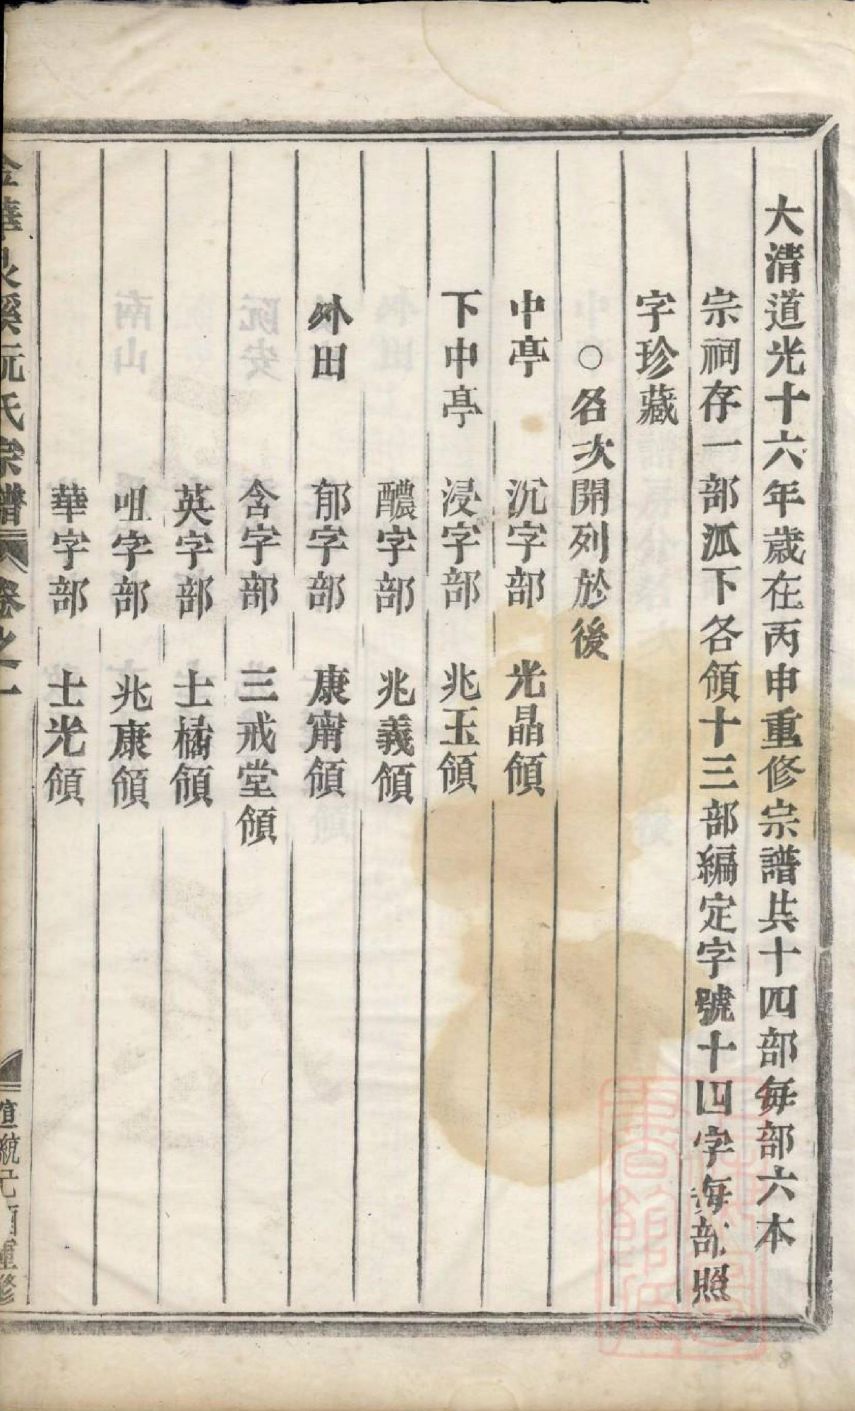 大清道光十六年歲在丙申重修宗譜共十四部每部六本
宗祠存一部派下各領十三部編定字號十四字每部照
字珍藏
○名次開列於後
中亭 沉字部 光晶領
下中亭 浸字部 兆玉領
醲字部 兆義領
外田 郁字部 康甯領
含字部 三戒堂領
英字部 士橘領
咀字部 兆康領
華字部 士光領
金華泉溪阮氏宗譜 卷之一 宣統己酉重修